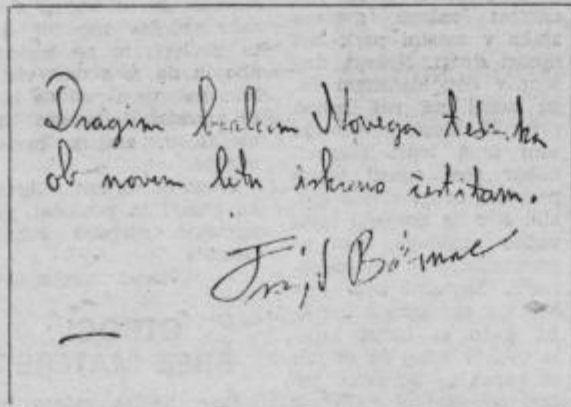 Dragim bralcem Novega tednika
ob novem letu iskreno čestitam.